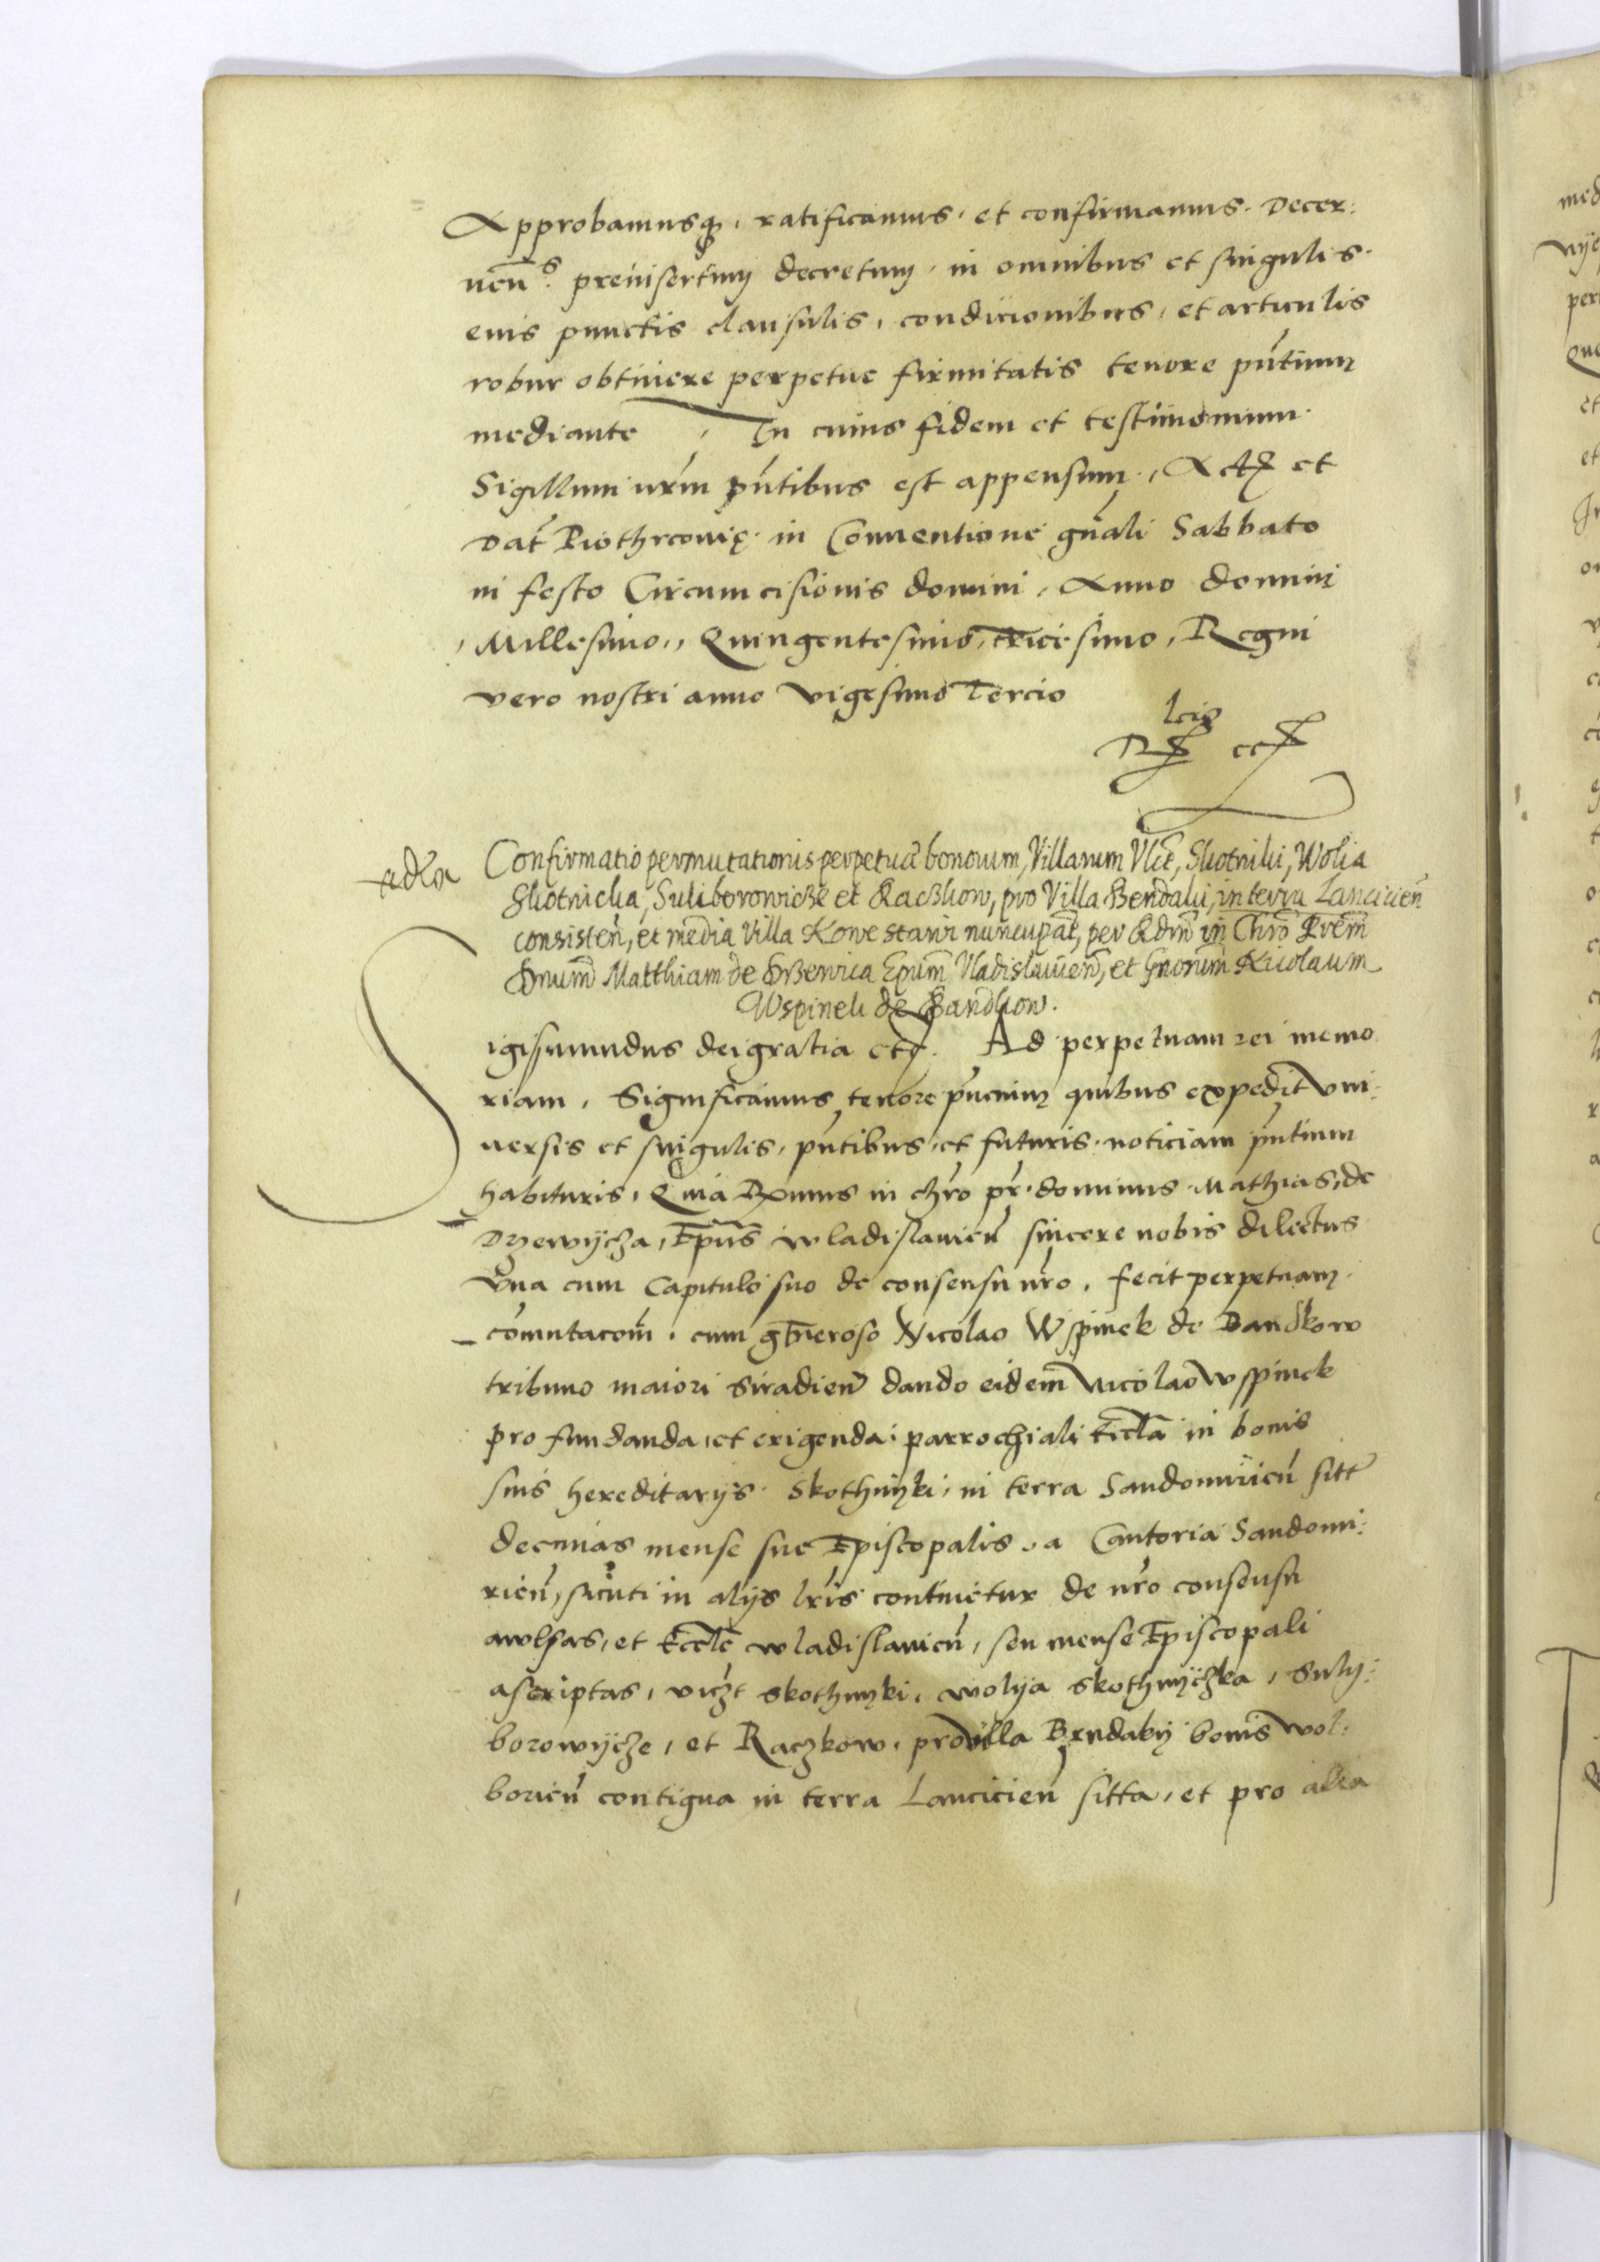 Approbamusq, ratificamus, et confirmamus. Decer:
nen̄s. preinsertum decretum, in omnibus et singulis
euis punctis clausulis, condicionibus, et articulis
robur obtinere perpetue firmitatis tenore pn̄tium
mediante, In cuius fidem et testimonium
Sigillum nr̄m pn̄tibus est appensum, Actū et
Dat̄ Piothrcouię in Conuentione gn̄ali Sabbato
in festo Circumcisionis domini, Anno domini
Millesimo, Quingentesimo, tricesimo, Regni
vero nostri anno vigesimo Tercio
Confirmatio permutationis perpetuæ bonorum, Villarum Vlt̄, Skotniki, Wolia
Skotnicka, Suliborowicze et Raczkow, pro Villa Bendaki, in terra Lancicień
consisteń, et media Villa Kowe stawi nuncupat̄, per Rdm̄ in Chrō Prēm
Dnūm Matthiam de Drzewica Epūm Vladislauień, et Gnōrum Nicolaum
Wspinek de Bandkow.
Sigismundus dei gratia etc. Ad perpetuam rei memo
riam, Significamus tenore pn̄cium quibus expedit vni:
uersis et singulis, pn̄tibus, et futuris, noticiam pn̄tium
habituris, Quia Rx̄mus in chr̄o pr̄. dominus Mathias, de
Drzewycza, Epūs wladislauień sincere nobis dilectus
Vna cum Capitulo suo de consensu nr̄o, fecit perpetuam
com̄utacom̄, cum gn̄eroso Nicolao Wspinek de Bandkow
tribuno maiori Siradień dando eidem Nicolao Wspinek
pro fundanda, et erigenda, parrochiali Eccl̄a in bonis
suis hereditarijs Skothnyki, in terra Sandomirień sitt̄
decimas mense sue Episcopalis, a Cantoria Sandomi:
rień, sicuti in alijs lr̄is continetur de nr̄o consensu
awlsas, et Eccl̄e wladislauień, seu mense Episcopali
ascriptas, vicz̄t Skothnyki, wolya Skothnyczka, Suly:
borowycze, et Raczkow, pro villa Bendaky bonis wol:
borień contigua in terra Lancicień sitta, et pro alia